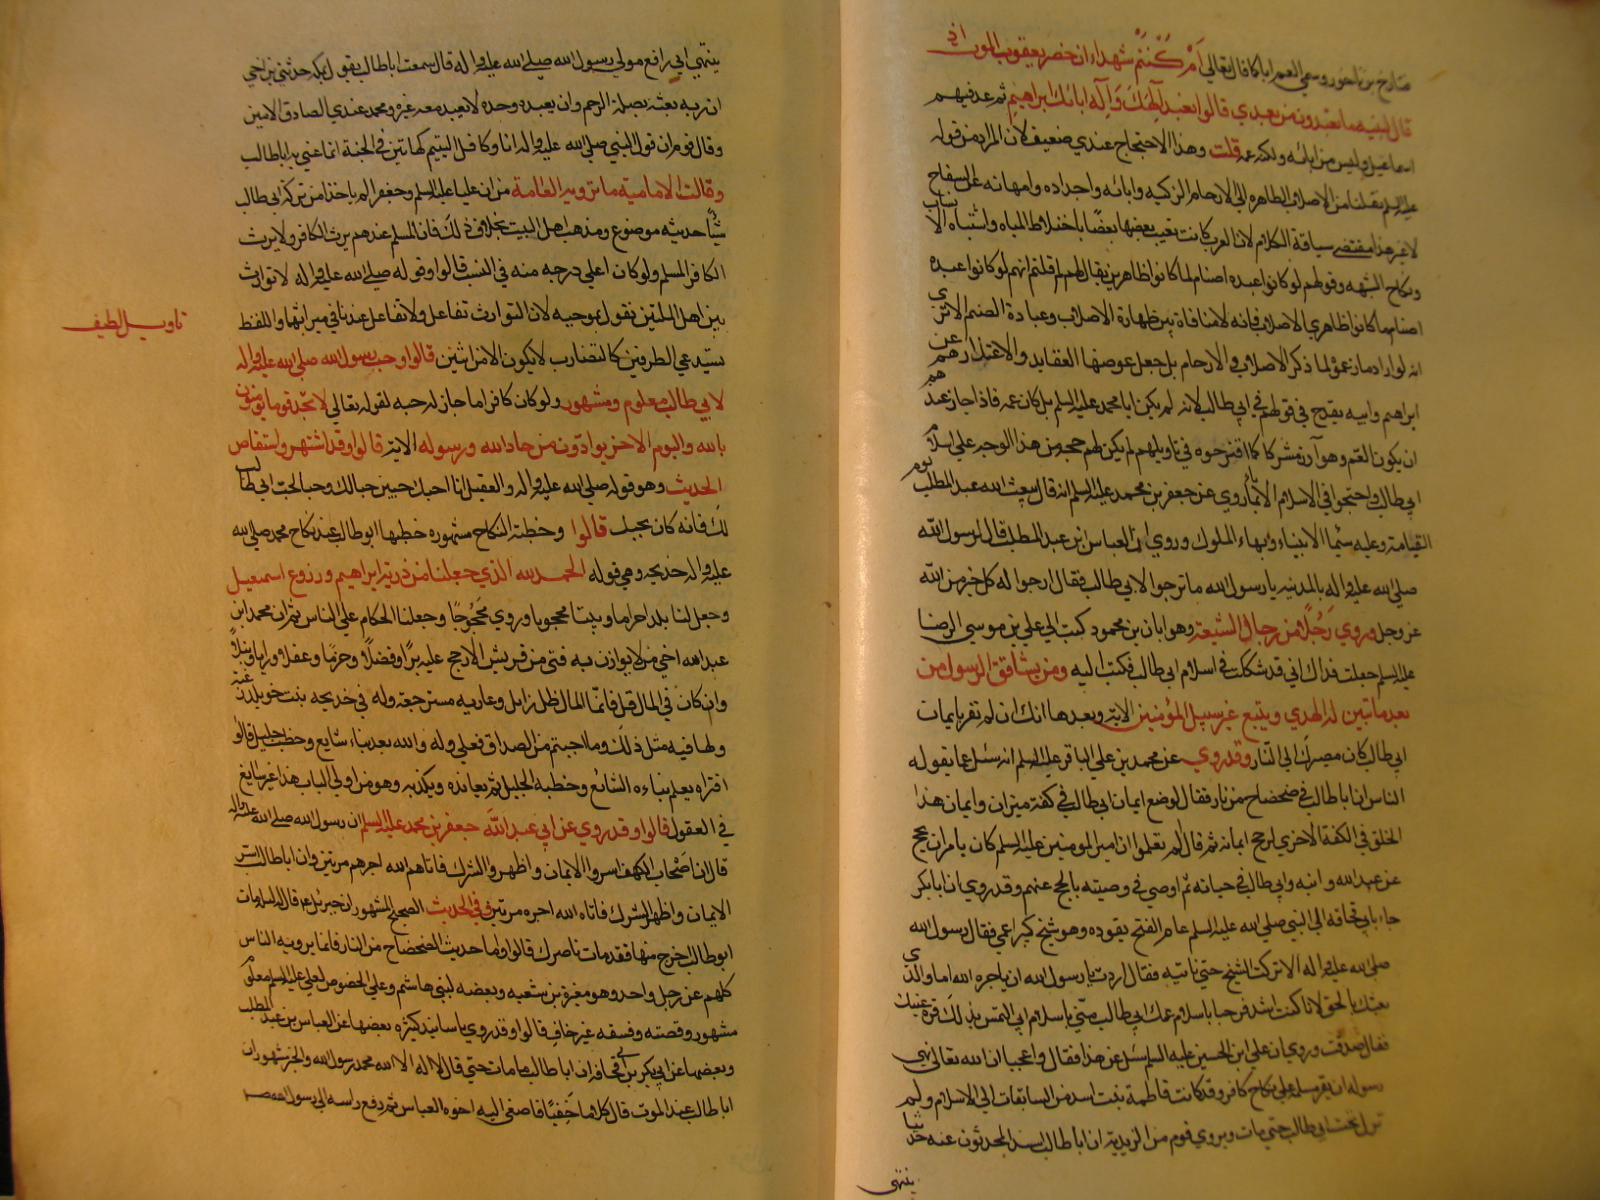 تارخ بن ناحور وسمي العم ابا كما قال تعالي اَمْ كُنْتُمْ شهداء اذ حضر يعقوب الموت اذ
قال لبنيه ما تعبدون من بعدي قالوا نعبد اِلٰهَكَ وَاِلٰه ابائك ابراهيم ثم عد فيهم
اسماعيل وليس من ابائه ولكنه عمه قلت وهذا الاحتجاج عندي ضعيف لان المراد من قوله
عليه السلم نقلنا من الاصلاب الطاهره الي الارحام الزكيه وابائه واجداده وامهاته عن السفاح
لا غير هذا مقتضي سياقة الكلام لان العرب كانت يعيب بعضها بعضًا باختلاط المياه واشتباه الانساب
ونكاح الشبهه وقولهم لو كانوا عبده اصنام لما كانوا ظاهرين يقال لهم لم قلتم انهم لو كانوا عبدة
اصنام ما كانوا ظاهري الاصلاب فانه لا منافاة بين طهارة الاصلاب وعبادة الصنم الا تري
انه لو اراد ما زعموا لما ذكر الاصلاب والارحام بل جعل عوضها العقايد والاعتذار عن
ابراهيم وابيه يقدح في قولهم في ابي طالب لانه لم يكن ابا محمد عليه السلم بل كان عمه فاذا جاز عندهم
ان يكون العم وهو آزر مشركا كما اقترحوه في تاويلهم لم يكن لهم حجه من هذا الوجه علي اسلام
ابي طالب واحتجوا في الاسلام الاباء بما روي عن جعفر بن محمد عليه السلم انه قال يبعث الله عبد المطلب يوم
القيامة وعليه سيما الانبياء وبهاء الملوك وروي ان العباس ابن عبد المطلب قال لرسول الله
صلي الله عليه واله بالمدينه يا رسول الله ما ترجوا لابي طالب فقال ارجوا له كل خير من الله
عز وجل وروي رَجُلًا من رجال الشيعة وهو ابان بن محمود كتب الي علي بن موسي الرضا
عليه السلم جعلت فداك اني قد شككت في اسلام ابي طالب فكتب اليه ومن يشاقق الرسول من
بعد ما تبين له الهدي ويتبع غير سبيل المؤمنين الاية وبعدها انك ان لم تقر بايمان
ابي طالب كان مصيرك الي النّار وقد روي عن محمد بن علي الباقر عليه السلم انه سئل عما يقوله
الناس ان ابا طالب في ضحضاح من نار فقال لو وضع ايمان ابي طالب في كفة ميزان وايمان هذا
الخلق في الكفة الاخري لرجح ايمانه ثم قال الم تعلموا ان امير المومنين عليه السلم كان يامر ان يحج
عن عبد الله وابنه وابي طالب في حياته ثم اوصي في وصيته بالحج عنهم وقد روي ان ابا بكر
جاء بابي قحافه الي النبي صلي الله عليه السلم عام الفتح يقوده وهو شيخ كبير اعمي فقال رسول الله
صلي الله عليه واله الا تركت الشيخ حتي ناتيه فقال اردت يا رسول الله ان ياجره الله اما والذي
بعثك بالحق لانا كنت اشد فرحا باسلام عمك ابي طالب منّي باسلام ابي التمس بذلك قرة عينك
فقال صدقت وروي ان علي ابن الحسين عليه السلم سئل عن هذا فقال واعجبا ان الله تعالي نهي
رسوله ان يقر مسلمه علي نكاح كافر وقد كانت فاطمة بنت اسد من السابقات الي الاسلام ولم
تزل تحت ابي طالب حتي مات ويروي قوم من الزيدية ان ابا طالب اسند المحدثون عنه حديثا
ينتهي
ينتهي الي ابي رافع مولي رسول الله صلي الله عليه واله قال سمعت ابا طالب يقول بمكه حدثني بن اخي
ان ربه بعثه بصلة الرحم وان يعبده وحده لا يعبد معه غيره ومحمد عندي الصادق الامين
وقال قوم ان قول النبي صلي الله عليه واله انا وكافل اليتيم كهاتين في الجنة انما عني به ابا طالب
وقالت الامامية ما ترويه العامة من ان عليا عليه السلم وجعفرا لم ياخذا من تركة ابي طالب
شيًا حديثه موضوع ومذهب اهل البيت بخلاف ذلك فان المسلم عندهم يرث الكافر ولا يرث
الكافر المسلم ولو كان اعلي درجه منه في النسب قالوا وقوله صلي الله عليه واله لا توارث
بين اهل الملتين نقول بموجبه لان التوارث تفاعل ولا تفاعل عندنا في ميراثهما واللفظ
تاويل لطيف
يستدعي الطرفين كالتضارب لا يكون الا من اثنين قالوا وحب رسول الله صلي الله عليه واله
لابي طالب معلوم ومشهور ولو كان كافرا ما جاز له حبه لقوله تعالي لا تجد قوما يومنون
بالله واليوم الاخر يوادّون من حاد الله ورسوله الاية قالوا وقد اشتهر واستفاض
الحديث وهو قوله صلي الله عليه واله والعقيل انا احبك حبين حبا لك وحبا لحب ابي طالب
لك فانه كان يحبك قالوا وخطبة النكاح مشهوره خطبها ابو طالب عند نكاح محمد صلي الله
عليه واله خديجه وهي قوله الحمد لله الذي جعلنا من ذرية ابراهيم وزرع اسمعيل
وجعل لنا بلدا حراما وبيتا محجوبا وروي مَحْجُوجًا وجعلنا الحكام علي الناس ثم ان محمد ابن
عبد الله اخي من لا يوازن به فتي من قريش الا رجح عليه برًا وفضلًا وحزمًا وعقلا ورايا ونبلًا
وان كان في المال قل فانّما المال ظل زايل وعاريه مسترجعة وله في خديجه بنت خويلد رغبة
ولها فيه مثل ذلك وما احببتم من الصداق فعلي وله والله بعد نباء شايع وخطب جليل قالوا
افتراه يعلم نباءه الشائع وخطبه الجليل ثم يعانده ويكذبه وهو من اولي الالباب هذا غير سايغ
في العقول قالوا وقد روي عن ابي عبد الله جعفر بن محمد عليه السلم ان رسول الله صلي الله عليه واله
قال ان اصْحاب الكهف اسروا الايمان واظهروا الشرك فاتاهم الله اجرهم مرتين وان ابا طالب اسر
الايمان واظهر الشرك فاتاه الله اجره مرتين وفي الحديث الصحيح المشهور ان جبرئيل عم قال له ليلة مات
ابو طالب اخرج منها فقد مات ناصرك قالوا واما حديث الضحضاح من النار فانما يرويه الناس
كلهم عن رجل واحد وهو مغيرة بن شعبه وبغضه لبني هاشم وعلي الخصوص لعلي عليه السلم معلوم
مشهور وقصته وفسقه غير خاف قالوا وقد روي باسانيد كثيره بعضها عن العباس بن عبد المطلب
وبعضها عن ابي بكر بن ابي قحافه ان ابا طالب ما مات حتي قال لا اله الا الله محمد رسول الله والخبر مشهور ان
ابا طالب عند الموت قال كلاما خَفِيًا فاصغي اليه اخوه العباس ثم رفع راسه الي رسول الله